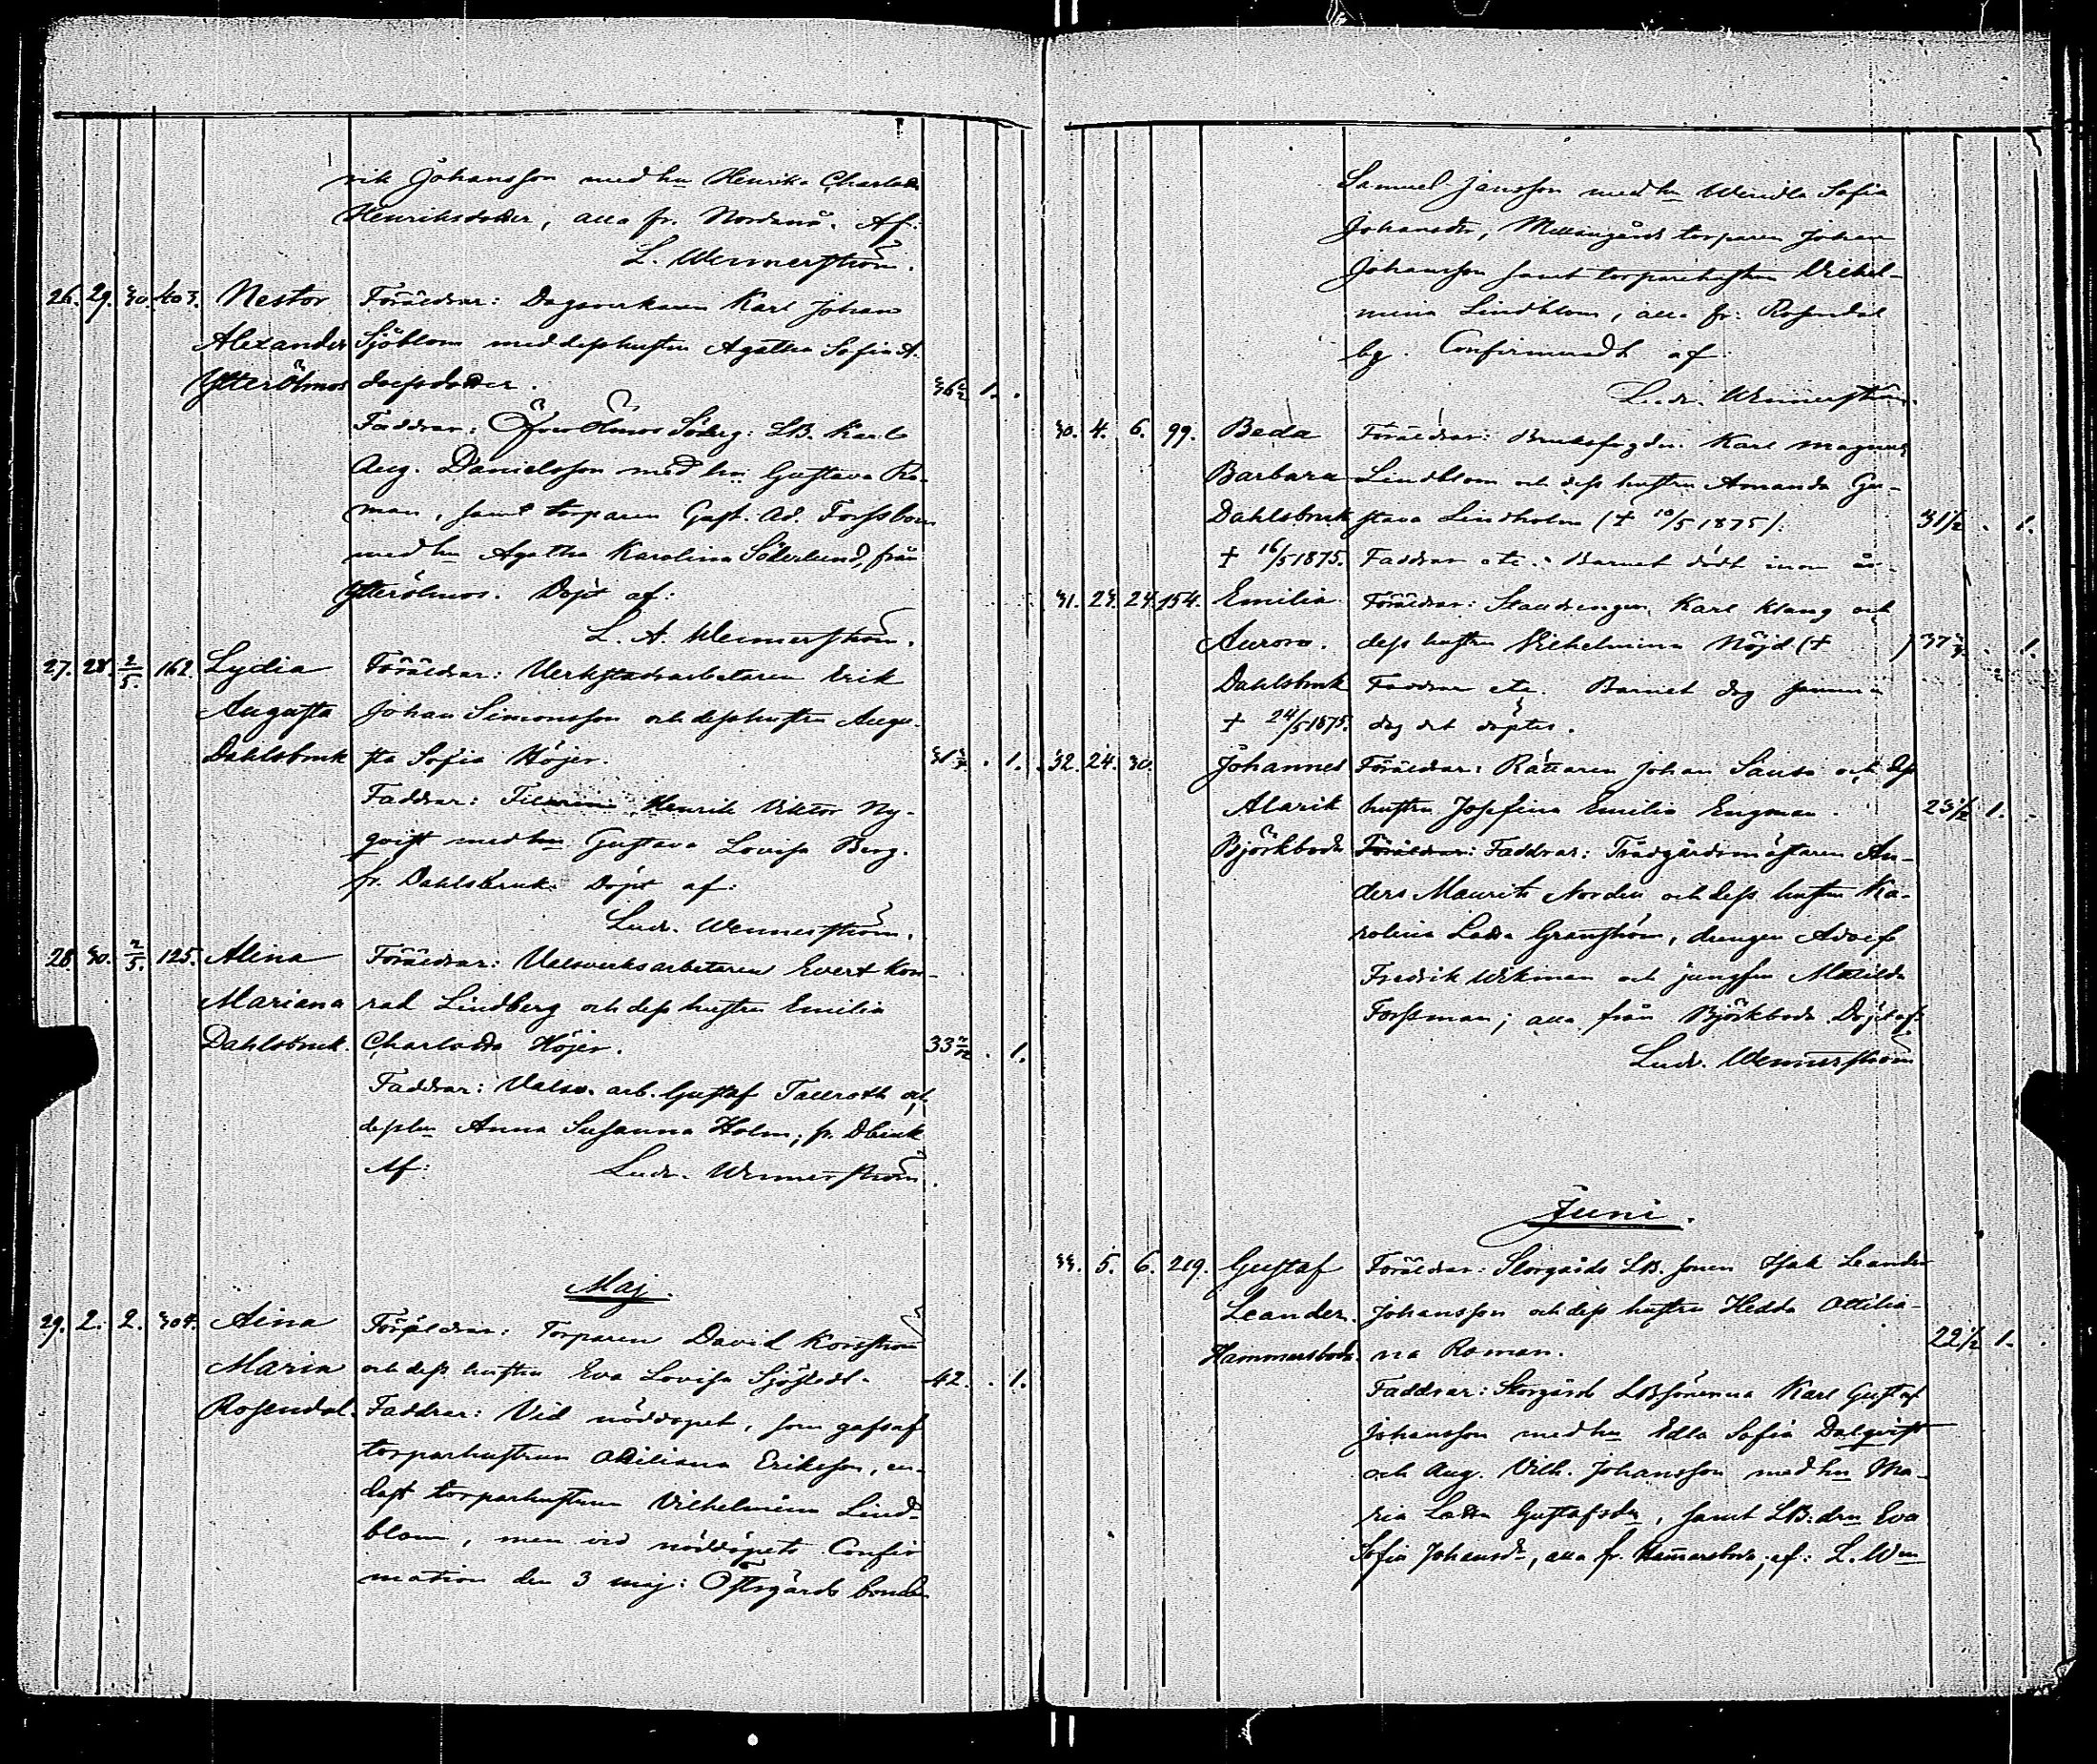 rik Johansson med hu Henrika Charlotta
Henriksdotter, alla fr. Nordanö. Af:
L. Wennerström.
26. 29. 30. 403. Nestor Föräldrar: Dagsverkaren Karl Johan
Alexander Sjöblom med dess hustru Agatha Sofia A-
Ytterölmos dolfsdotter. 36½ 1.
Faddrar: Öfverölmos Söderg: LB. Karl
Aug. Danielsson med hu Gustava Ro-
man, samt torparen Gust. Ad. Forssbom
med hu Agatha Karolina Söderlund, från
Ytterölmos. Döpt af:
L. A. Wennerström.
27. 28. 2/5. 162. Lydia Föräldrar: Verkstadsarbetaren Erik
Augusta Johan Simonsson och dess hustru Augu-
Dahlsbruk sta Sofia Höjer. 1.
Faddrar: Henrik Viktor Ny-
qvist med hu Gustava Lovisa Berg.
fr. Dahlsbruk. Döpt af:
Ludv. Wennerström.
28. 30. 2/5. 125. Alina Föräldrar: Valsverksarbetaren Evert Kon-
Mariana rad Lindberg och dess hustru Emilia
Dahlsbruk. Charlotta Höjer. 33 1.
Faddrar: Valsv. arb. Gustaf Tallroth och
dess hu Anna Susanna Holm; fr. Dbruk
Af: Ludv. Wennerström.
Maj.
29. 2. 2. 304. Aina Föräldrar: Torparen David Korsström
Maria och dess hustru Eva Lovisa Sjöstedt. 42. 1.
Rosendal. Faddrar: Vid nöddopet, som gafs af
torparhustrun Ottiliana Eriksson, en-
dast torparhustrun Vilhelmina Lind-
blom, men vid nöddopets Confir
mation den 3 maj: Östergårds bonden
Samuel Jansson med hu Wendla Sofia
Johansdr, Mellangårds torparen Johan
Johansson samt torparehustrun Vilhel-
mina Lindblom, alla fr. Rosendal
by. Confirmeradt af:
Ludv. Wennerström.
30. 4. 6. 99. Beda Föräldrar: Bruksfogden Karl Magnus
Barbara Lindblom och dess hustru Amanda Gu-
Dahlsbruk stava Lindholm († 10/5 1875). 31½ 1.
† 16/5 1875. Faddrar etc. Barnet dödt inom år.
31. 24. 24. 154. Emilia Föräldrar: Stalldrengen Karl Klang och
Aurora. dess hustru Vilhelmina Nöjd († ) 37 1.
Dahlsbruk Faddrar etc. Barnet dog samma
† 24/5 1875. dag det döptes.
32. 24. 30. Johannes Föräldrar: Rättaren Johan och dess
Alarik hustru Josefina Emilia Engman. 23½ 1.
Björkboda Föräldrar: Faddrar: Trädgårdsmästaren An-
ders Maurits Norden och dess hustru Ka-
rolina Lovisa Granström, drengen Adolf
Fredrik Wikman och jungfru Matilda
Forssman; alla från Björkboda. Döpt af:
Ludv. Wennerström
Juni.
33. 5. 6. 219. Gustaf Föräldrar: Storgårds LB. sonen Isak Leander
Leander. Johansson och dess hustru Hedda Ottilia-
Hammarsboda. na Roman. 22½ 1.
Faddrar: Storgårds LBsönerna Karl Gustaf
Johansson med hu Edla Sofia Dalqvist
och Aug. Vilh. Johansson med hu Ma-
ria Lovisa Gustafsdr, samt LB: dru Eva
Sofia Johansdr, alla fr. Hammarsboda; af: L. Wm